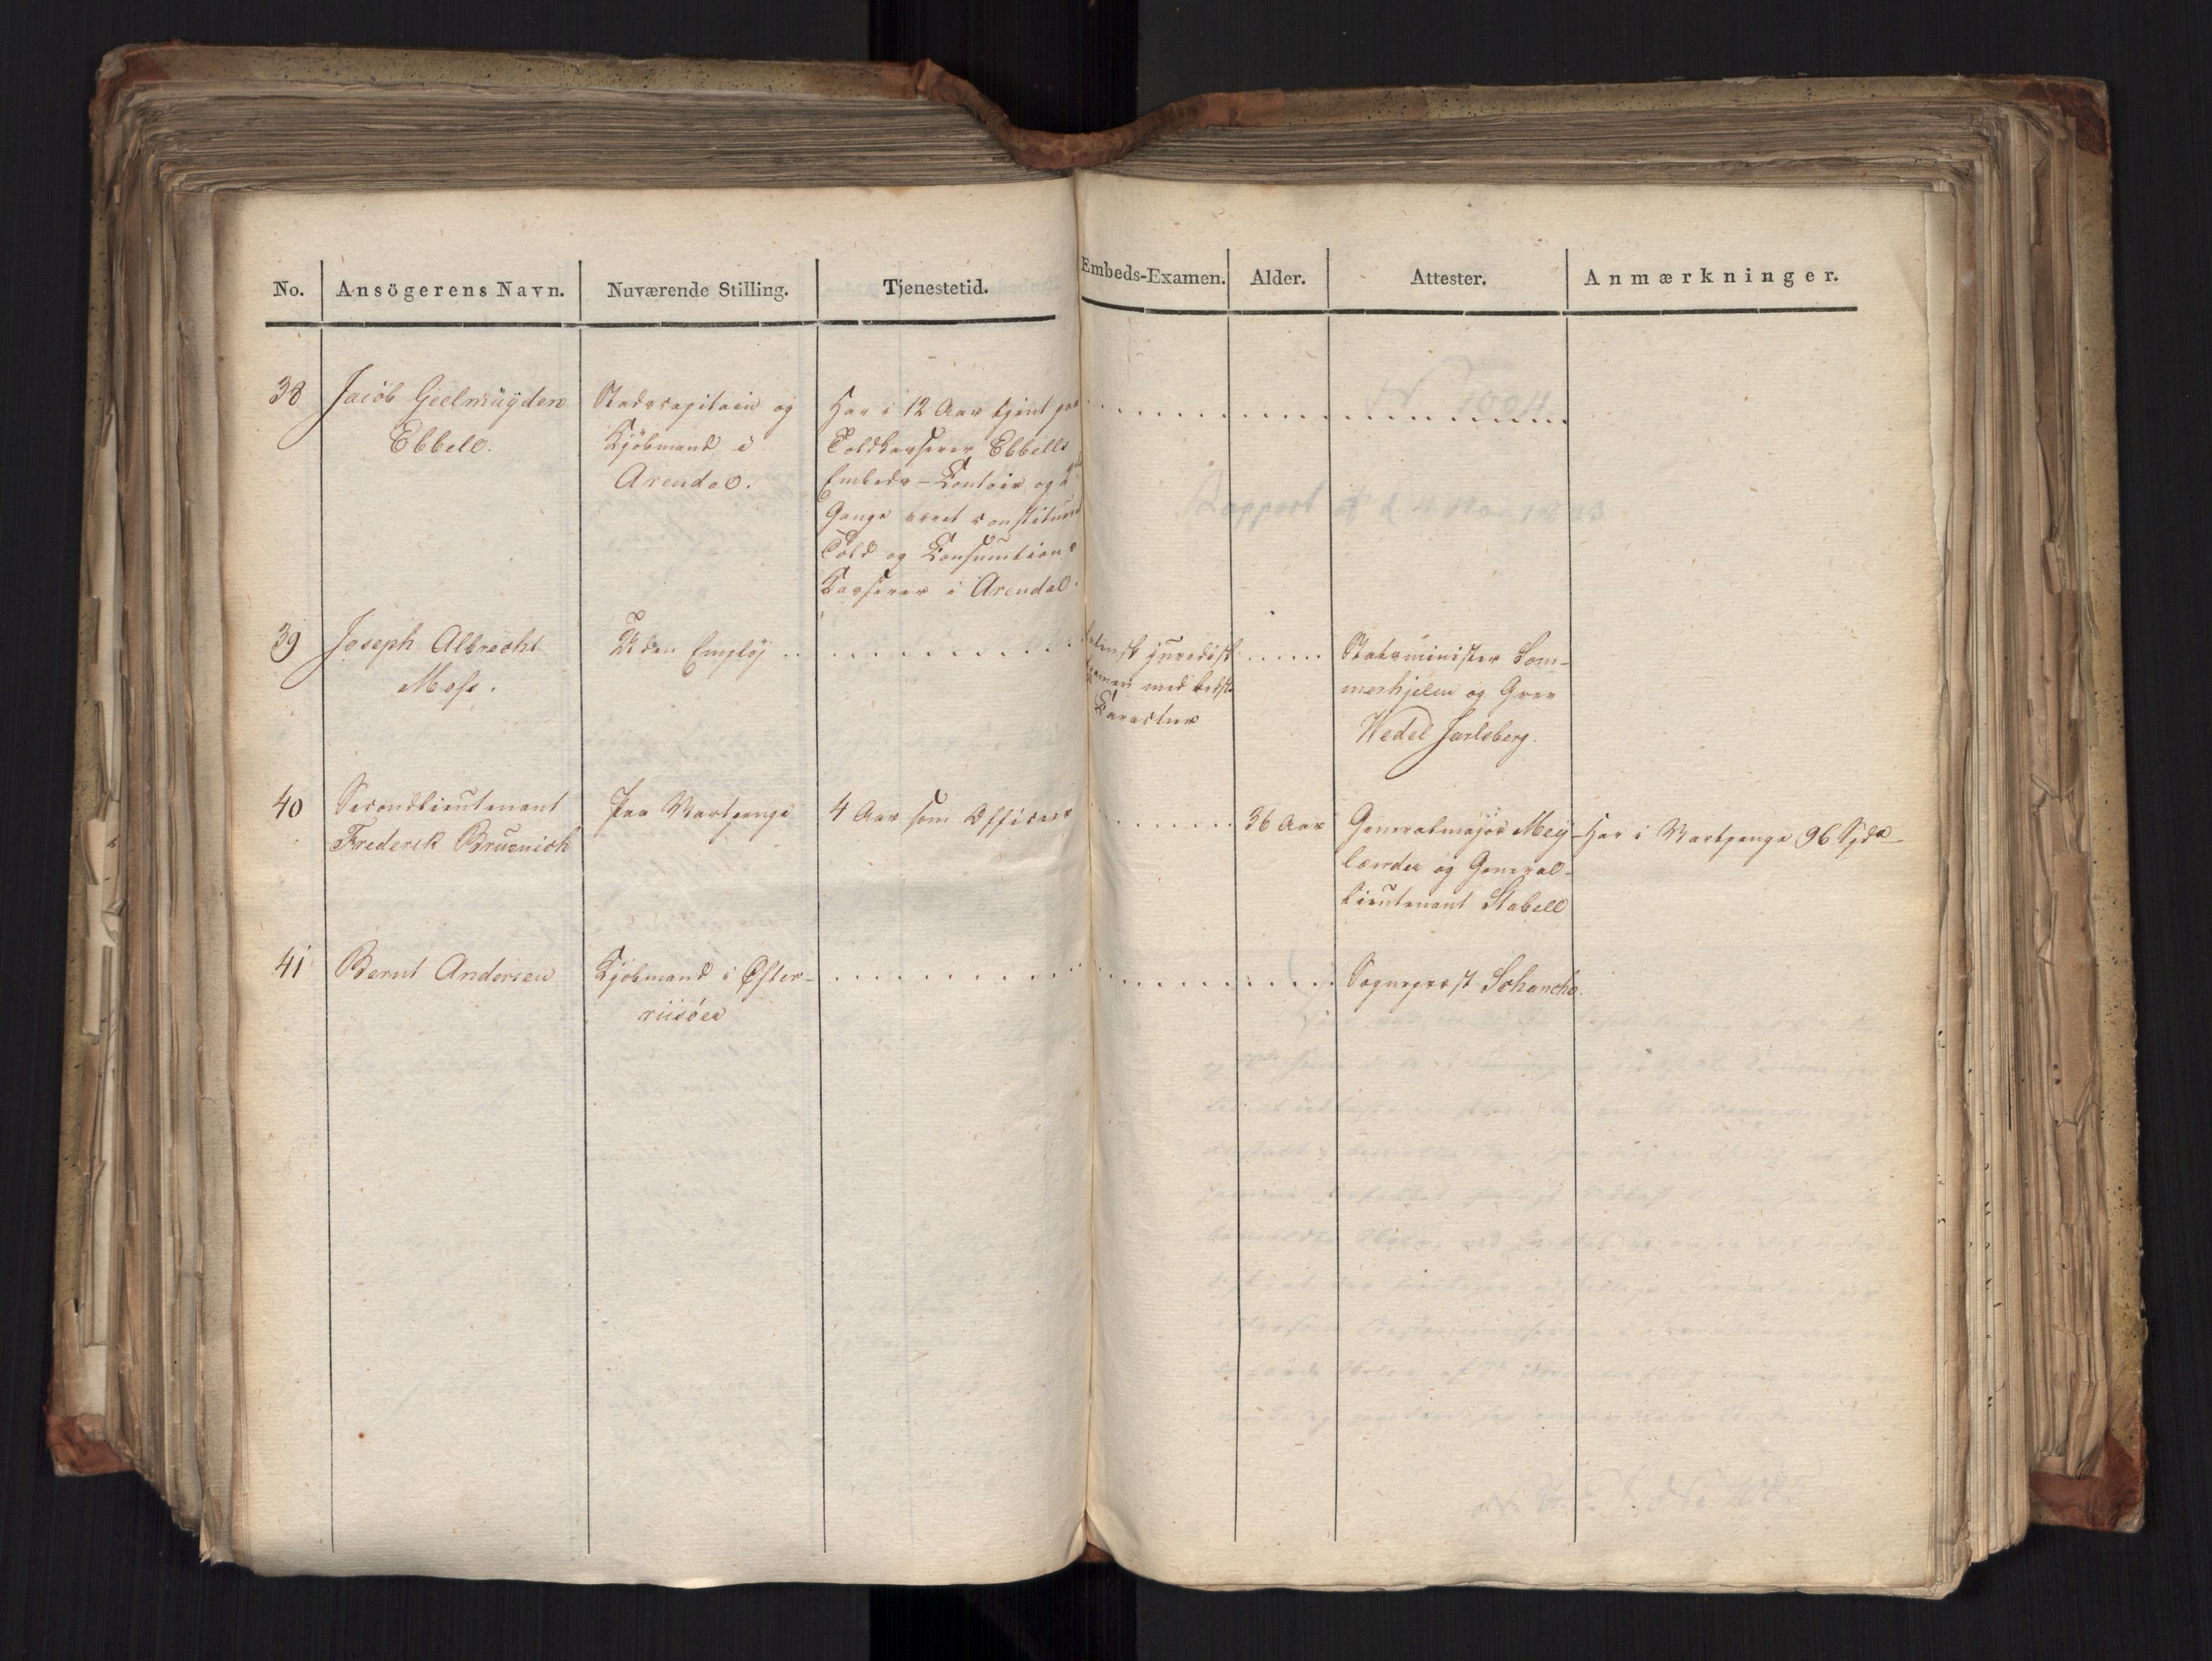 No. Ansögerens Navn. Nuværende Stilling. Tjenestetid. Embeds-Examen. Alder. Attester. Anmærkninger.
38 Jacob Geelmüyden
Ebbell.
Stadscapitain og
Kjöbmand i
Arendal.
Har i 12 Aar tjent paa
Toldkasserer Ebbells
Embeds-Contoir og 2
Gange været constitueret
Told og Consumtions
Kasserer i Arendal.
39 Joseph Albrecht
Moss.
Uden Employ
Latinsk juridisk
Examen med bedste
Caracteer
Statsminister Som-
merhjelm og Grev
Wedel Jarlsberg.
40 Secondlieutenant
Frederik Bruenich
Paa Vartpenge
4 Aar som Officeer
36 Aar
Generalmajor Mey-
lænder og General-
lieutenant Stabell
Har i Vartpenge 96 Spdr
41 Bernt Andersen
Kjöbmand i Öster-
riisöer
Sognepræst Schanche.